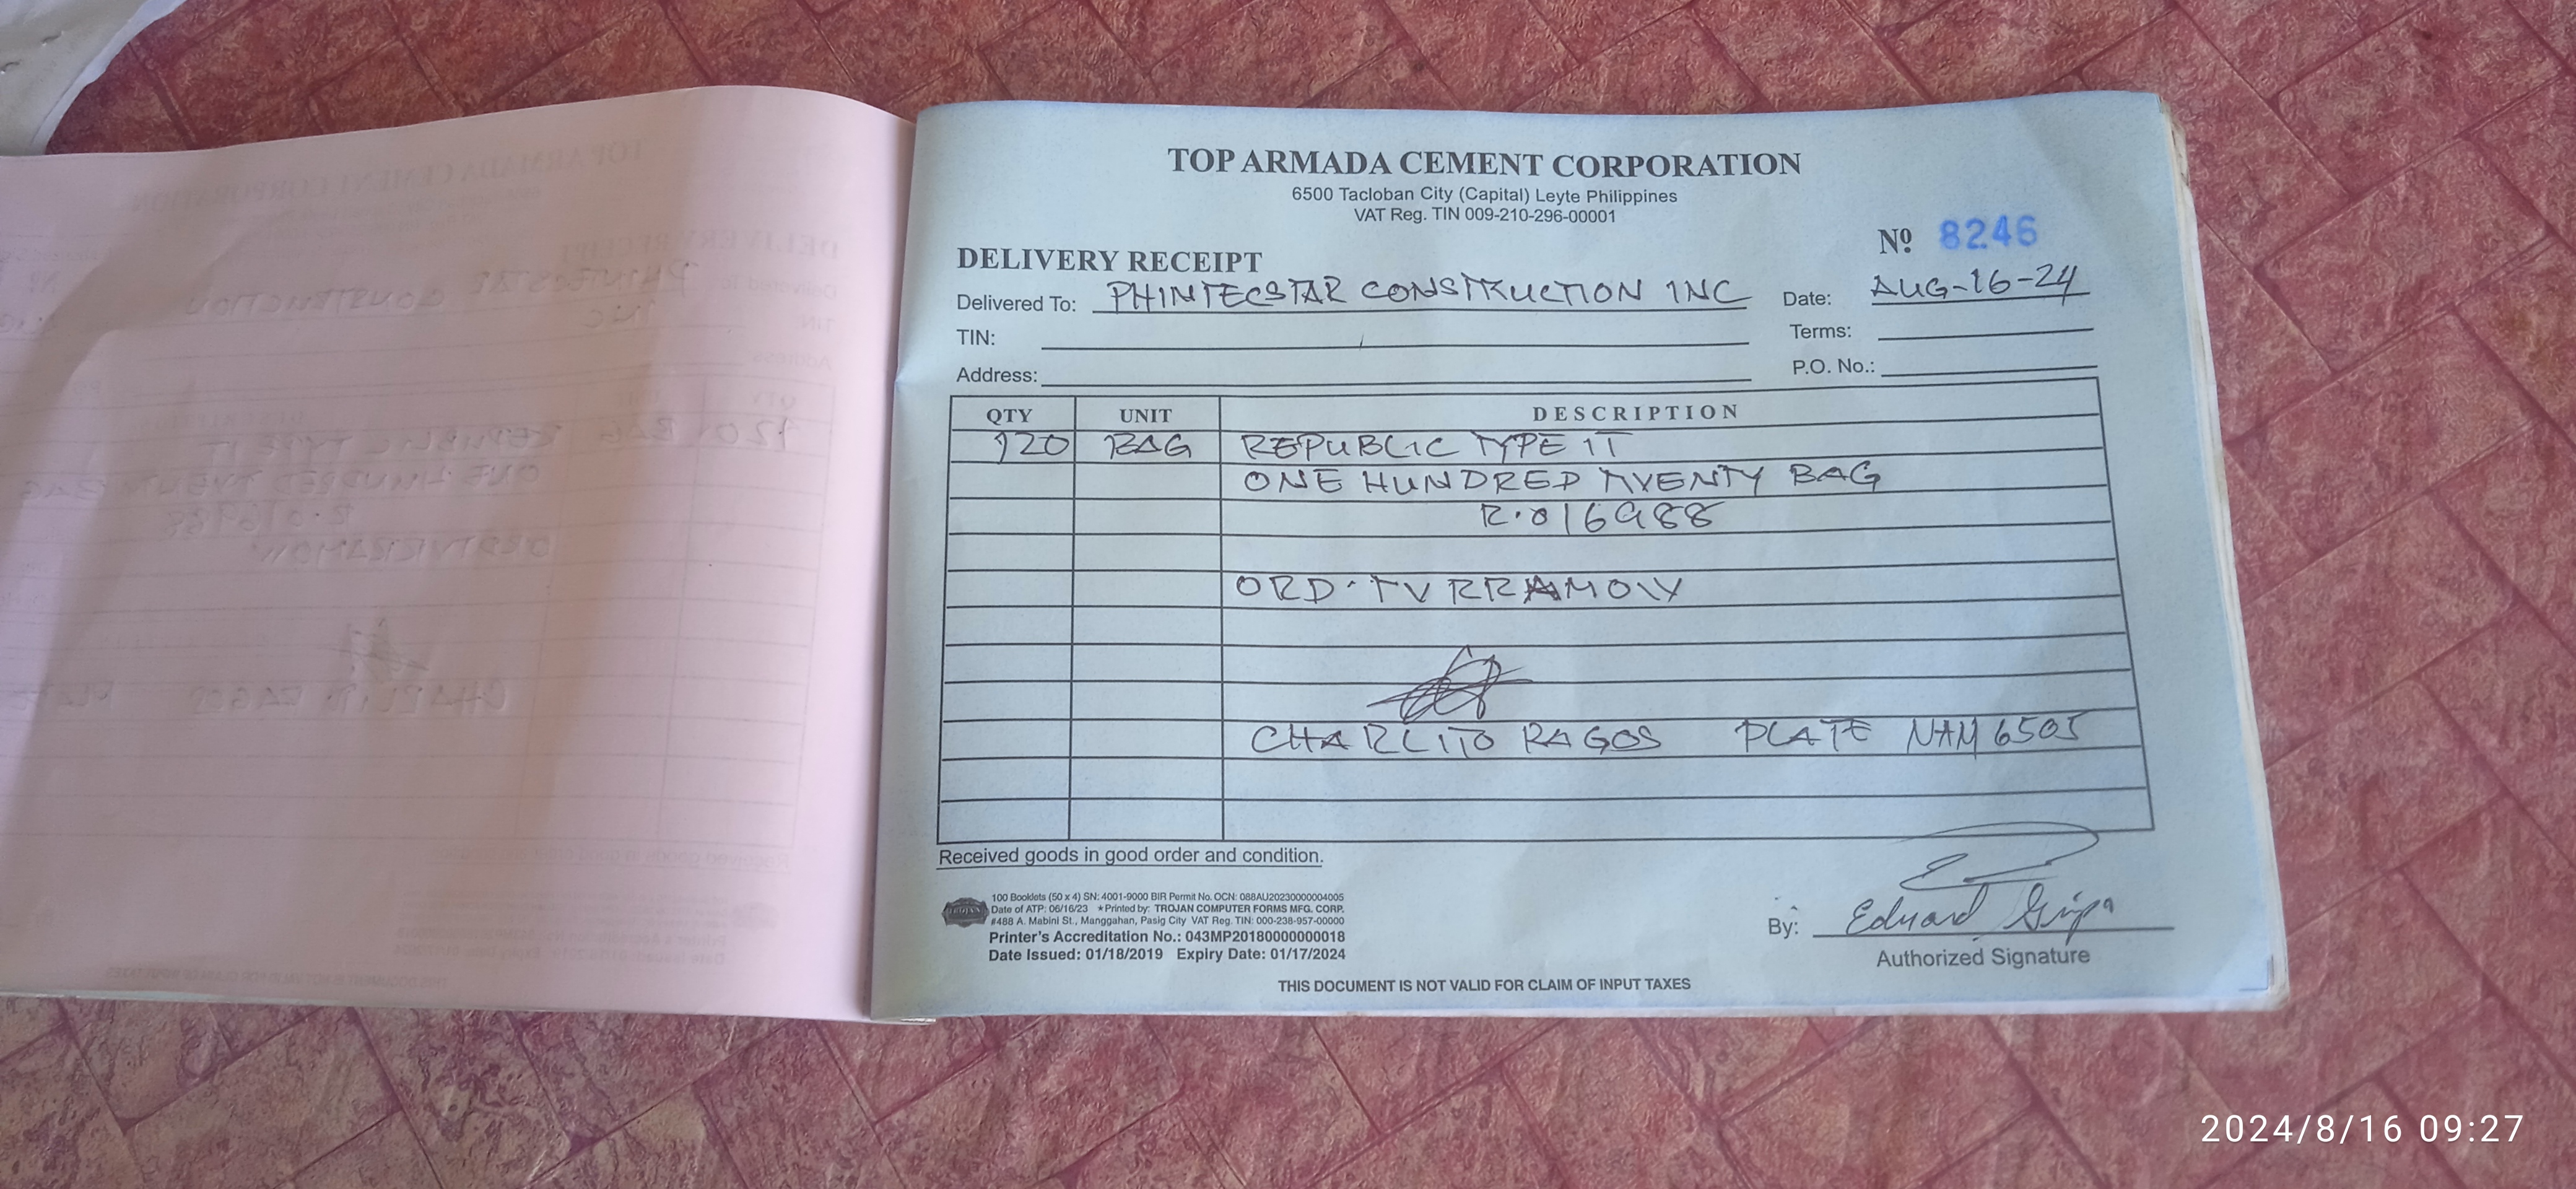 TOP ARMADA CEMENT CORPORATION
6500 Tacloban City (Capital) Leyte Philippines
VAT Reg. TIN 009-210-296-00001
Nº 8246
DELIVERY RECEIPT
Delivered To: PHINTECSTAR CONSTRUCTION INC Date: AUG-16-24
TIN: Terms:
Address: P.O. No.:
QTY UNIT DESCRIPTION
120 BAG REPUBLIC TYPE 1T
ONE HUNDRED TWENTY BAG
R.016988
ORD.
CHARLITO RAGOS PLATE NAM 6505
Received goods in good order and condition.
100 Booklets (50 x 4) SN: 4001-9000 BIR Permit No. OCN: 088AU20230000004005
Date of ATP: 06/16/23 ★Printed by: TROJAN COMPUTER FORMS MFG. CORP.
#488 A. Mabini St., Manggahan, Pasig City VAT Reg. TIN: 000-238-957-00000
Printer's Accreditation No.: 043MP20180000000018
Date Issued: 01/18/2019 Expiry Date: 01/17/2024
By: Eduard
Authorized Signature
THIS DOCUMENT IS NOT VALID FOR CLAIM OF INPUT TAXES
2024/8/16 09:27